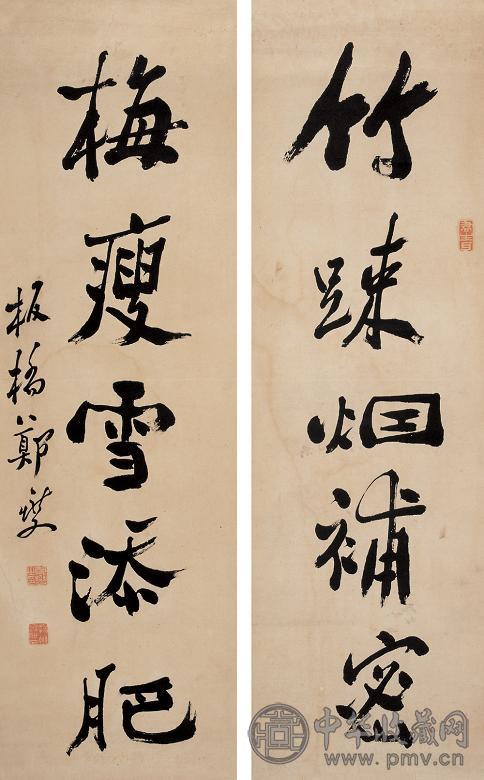 竹踈烟補密
梅瘦雪添肥
板橋鄭燮
中华收藏网
www.pmv.cn